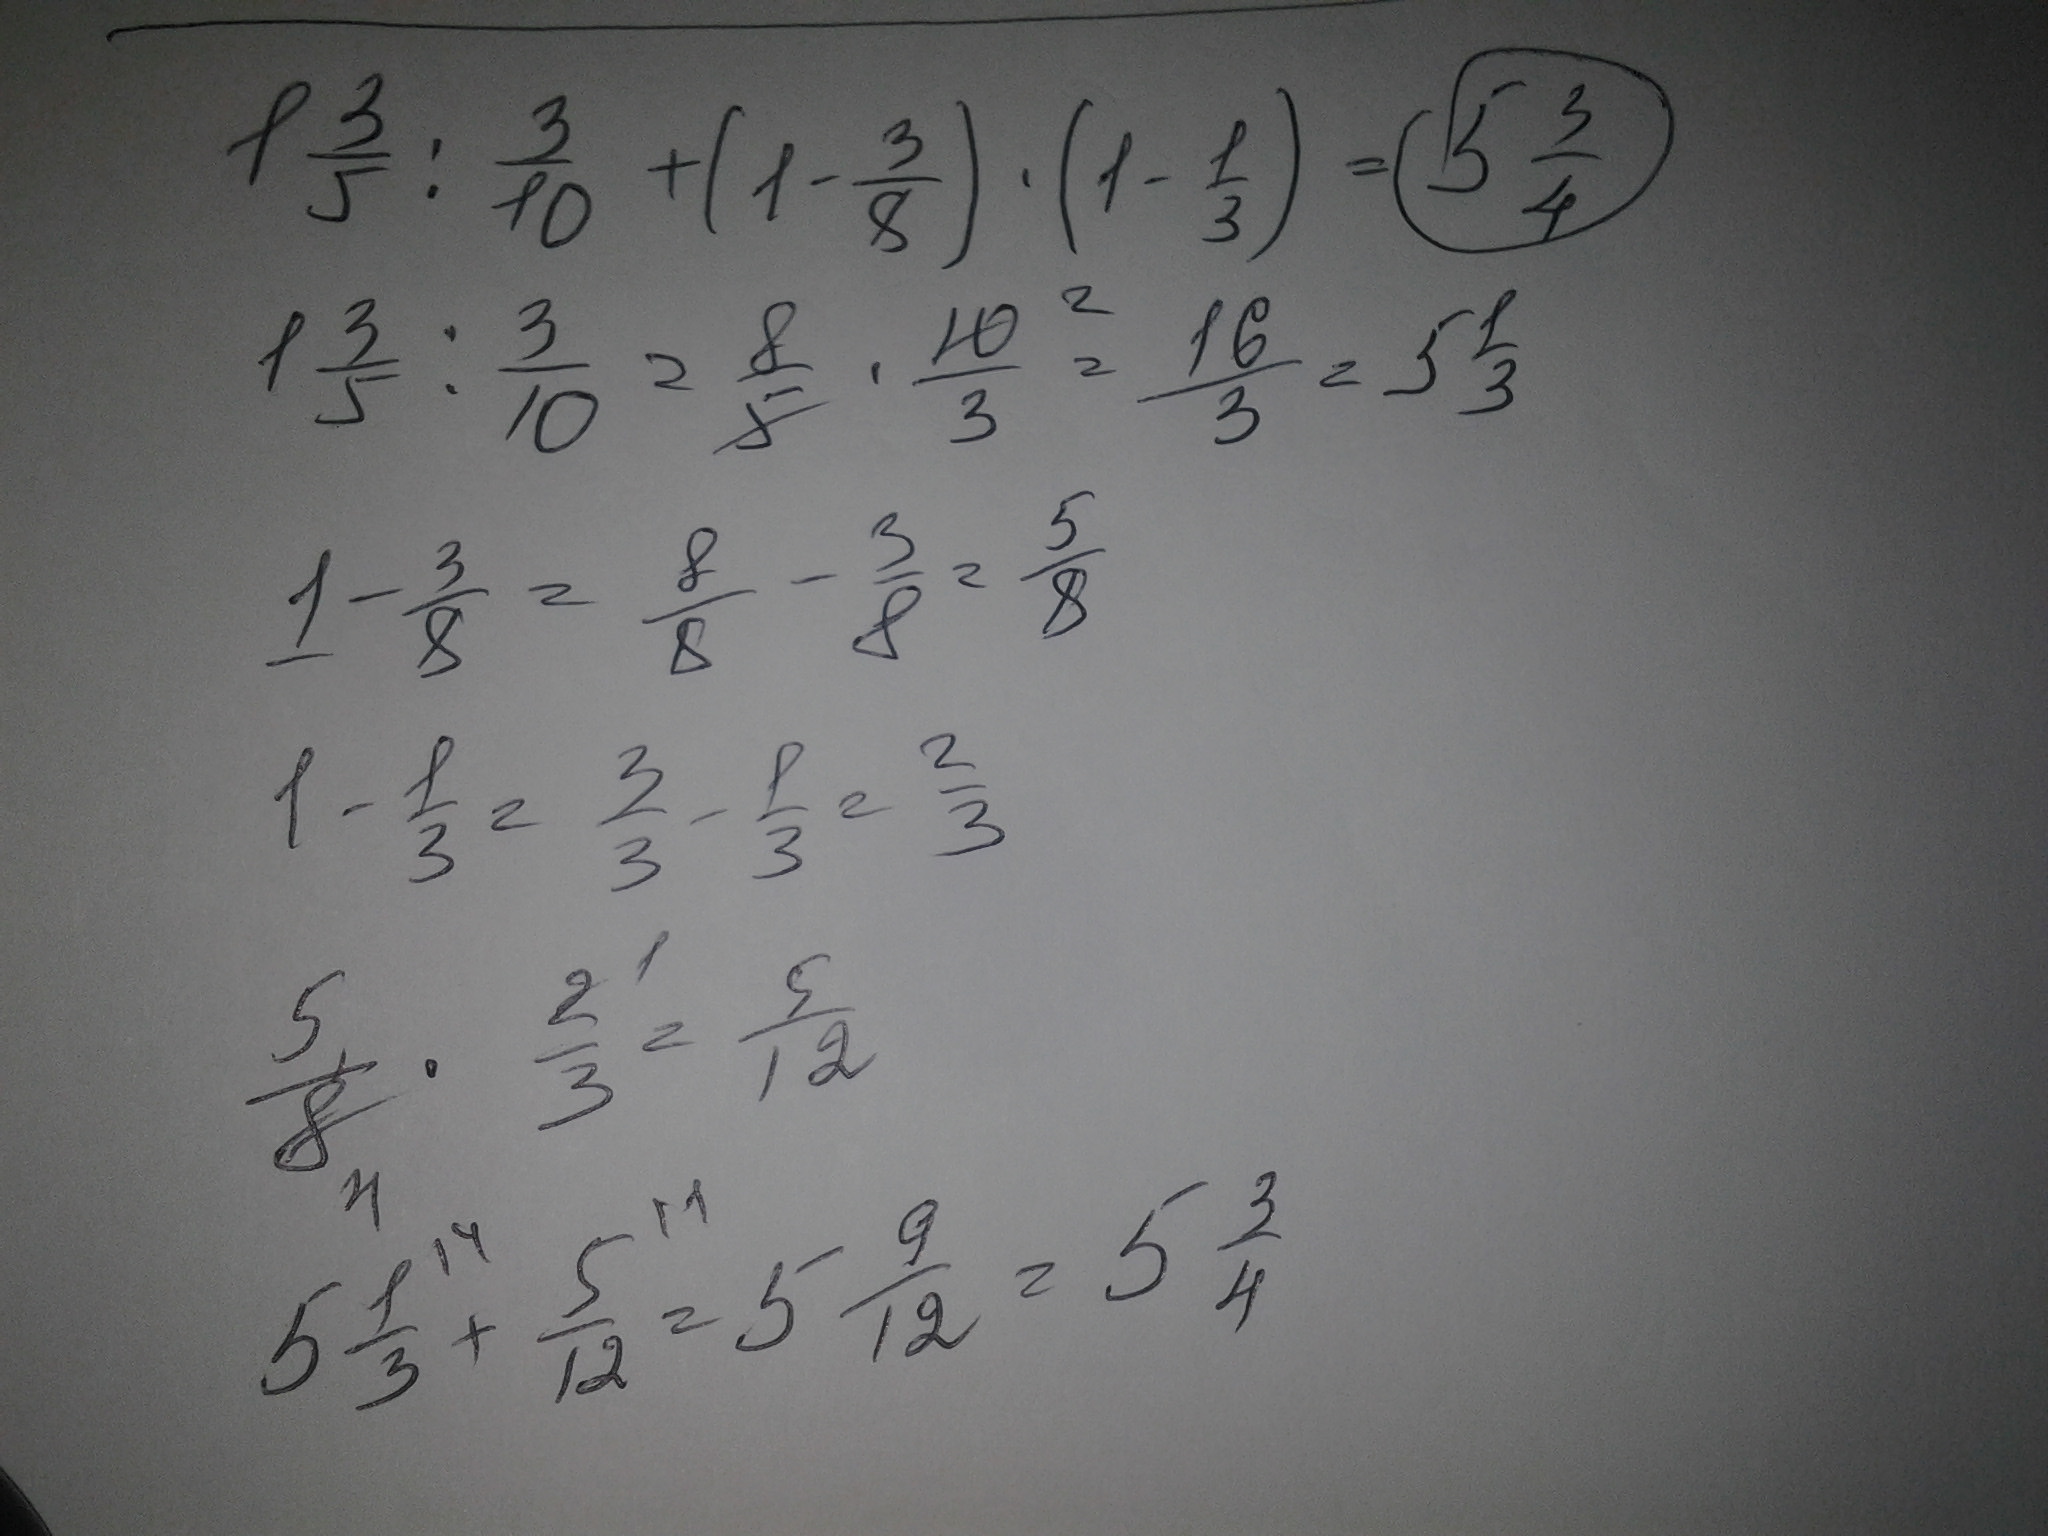 1 3/5 : 3/10 + (1 - 3/8) · (1 - 1/3) = 5 3/4
1 3/5 : 3/10 = 8/5 · 10/3 2 = 16/3 = 5 1/3
1 - 3/8 = 8/8 - 3/8 = 5/8
1 - 1/3 = 3/3 - 1/3 = 2/3
5/8 4 · 2/3 1 = 5/12
5 1/3 14 + 5/12 11 = 5 9/12 = 5 3/4